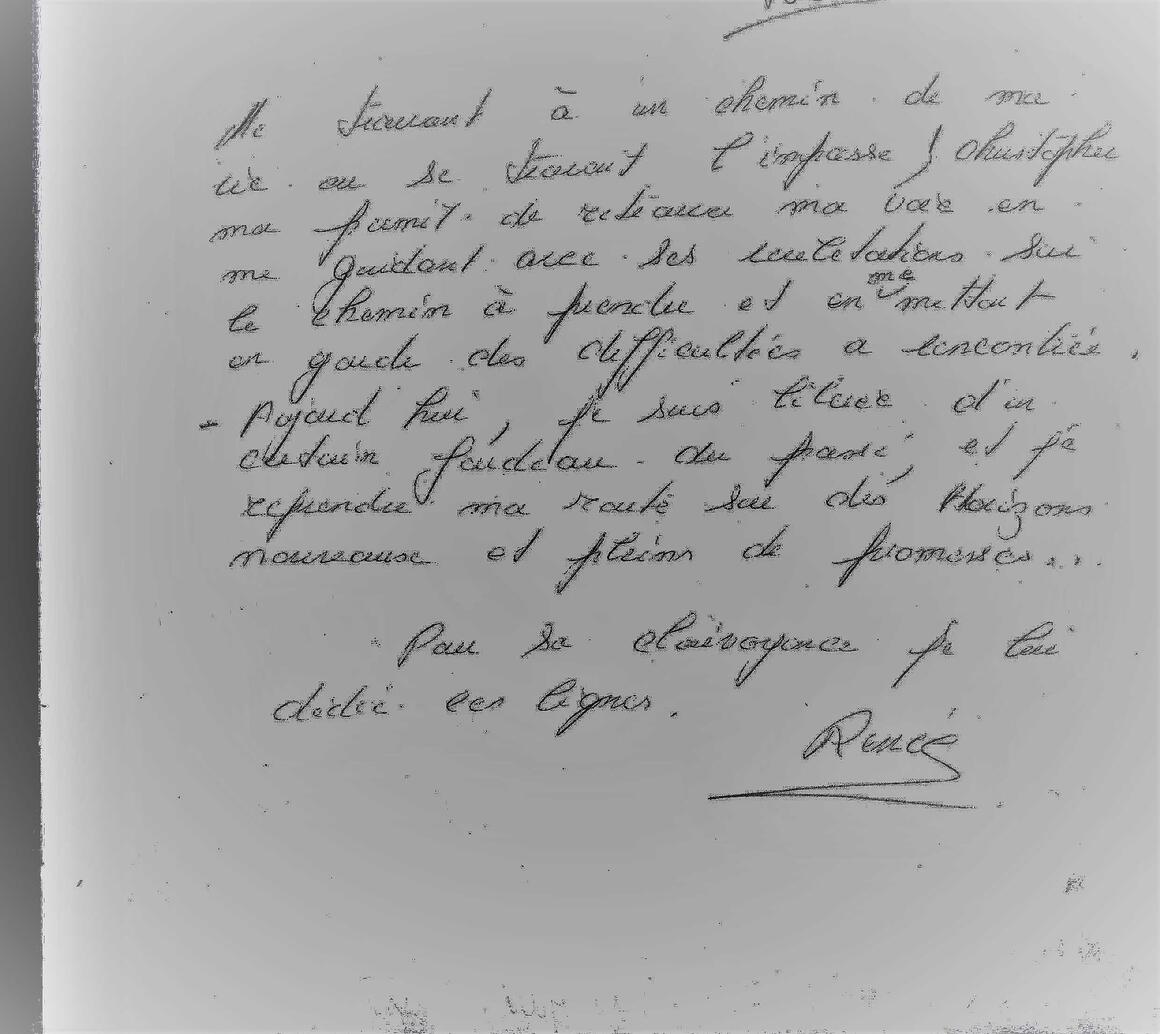 Me trouvant à un chemin de ma
vie ou se trouvait l'impasse, Christophe
ma permit de retrouver ma voie en
me guidant avec ses révélations sur
le chemin à prendre et en me mettant
en garde des difficultées a rencontrée.
- Aujourd hui, je suis libérée d'un
certain fardeau du passé, et je
reprendre ma route sur des Horizons
nouveaux et pleins de promesses...
Pour sa clairvoyance je lui
dédie ces lignes.
Renée